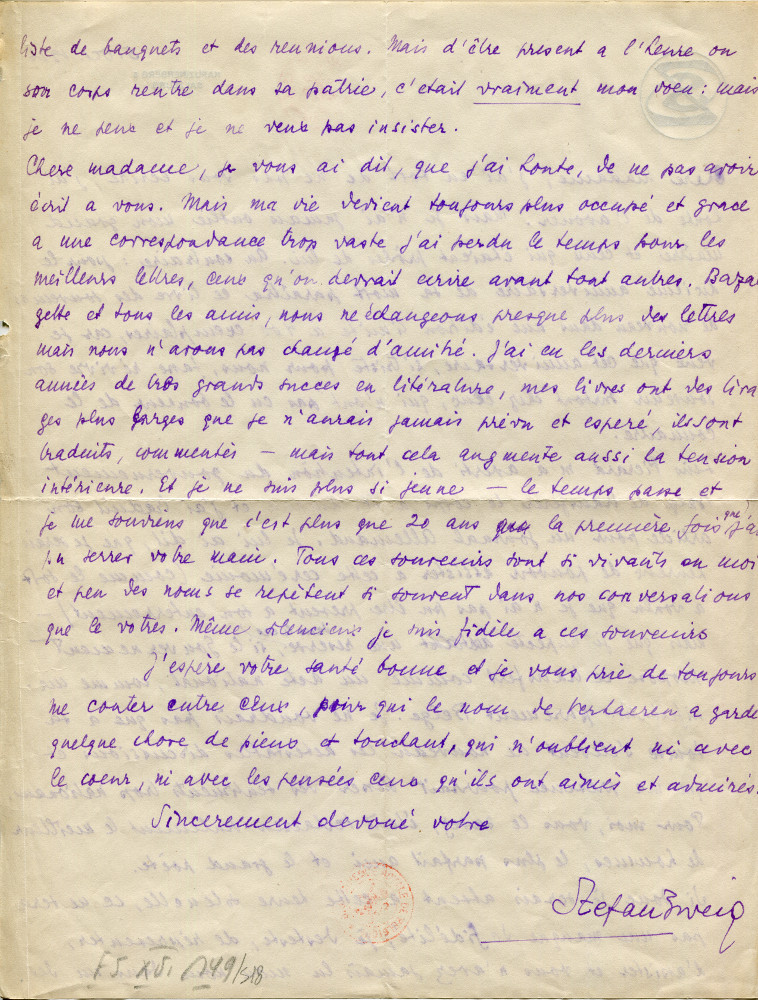 liste de banquets et des reunions. Mais d'être present a l'heure ou
son corps rentre dans sa patrie, c'était vraiment mon voeu: mais
je ne peux et je ne veux pas insister.
Chere madame, je vous ai dit, que j'ai honte, de ne pas avoir
écrit a vous. Mais ma vie devient toujours plus occupé et grace
a une correspondance trop vaste j'ai perdu le temps pour les
meilleurs lettres, ceux qu'on devrait ecrire avant tout autres. Bazal
gette et tous les amis, nous ne échangeons presque plus des lettres
mais nous n'avons pas changé d'amitié. J'ai eu les derniers
années de très grands succes en literature, mes livres ont des tira
ges plus larges que je n'aurais jamais prévu et esperé, ils sont
traduits, commentés — mais tout cela augmente aussi la tension
intérieure. Et je ne suis plus si jeune — le temps passe et
je me souviens que c'est plus que 20 ans la première fois que j'ai
pu serrer votre main. Tous ces souvenirs sont si vivants en moi
et peu des noms se repètent si souvent dans nos conversations
que le votres. Même silencieux je suis fidèle a ces souvenirs
J'espere votre santé bonne et je vous prie de toujours
me conter entre ceux, pour qui le nom de Verhaeren a gardé
quelque chose de pieux et touchant, qui n'oublient ni avec
le coeur, ni avec les pensées ceux qu'ils ont aimés et admirés.
Sincerement devoué votre
Stefan Zweig
F.S. XVI 1249/518